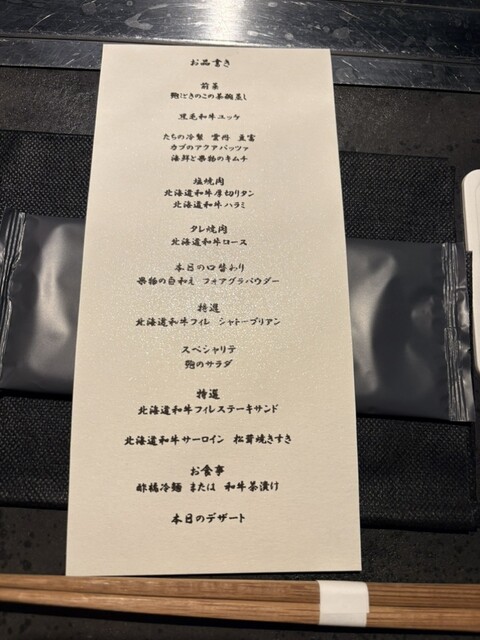 お品書き
前菜
鮑ときのこの茶碗蒸し
黒毛和牛ユッケ
たちの冷製 雲丹 豆富
カブのアクアパッツァ
海鮮と果物のキムチ
塩焼肉
北海道和牛厚切りタン
北海道和牛ハラミ
タレ焼肉
北海道和牛ロース
本日の口替わり
果物の白和え フォアグラパウダー
特選
北海道和牛フィレ シャトーブリアン
スペシャリテ
鮑のサラダ
特選
北海道和牛フィレステーキサンド
北海道和牛サーロイン 松茸焼きすき
お食事
酢橘冷麺 または 和牛茶漬け
本日のデザート